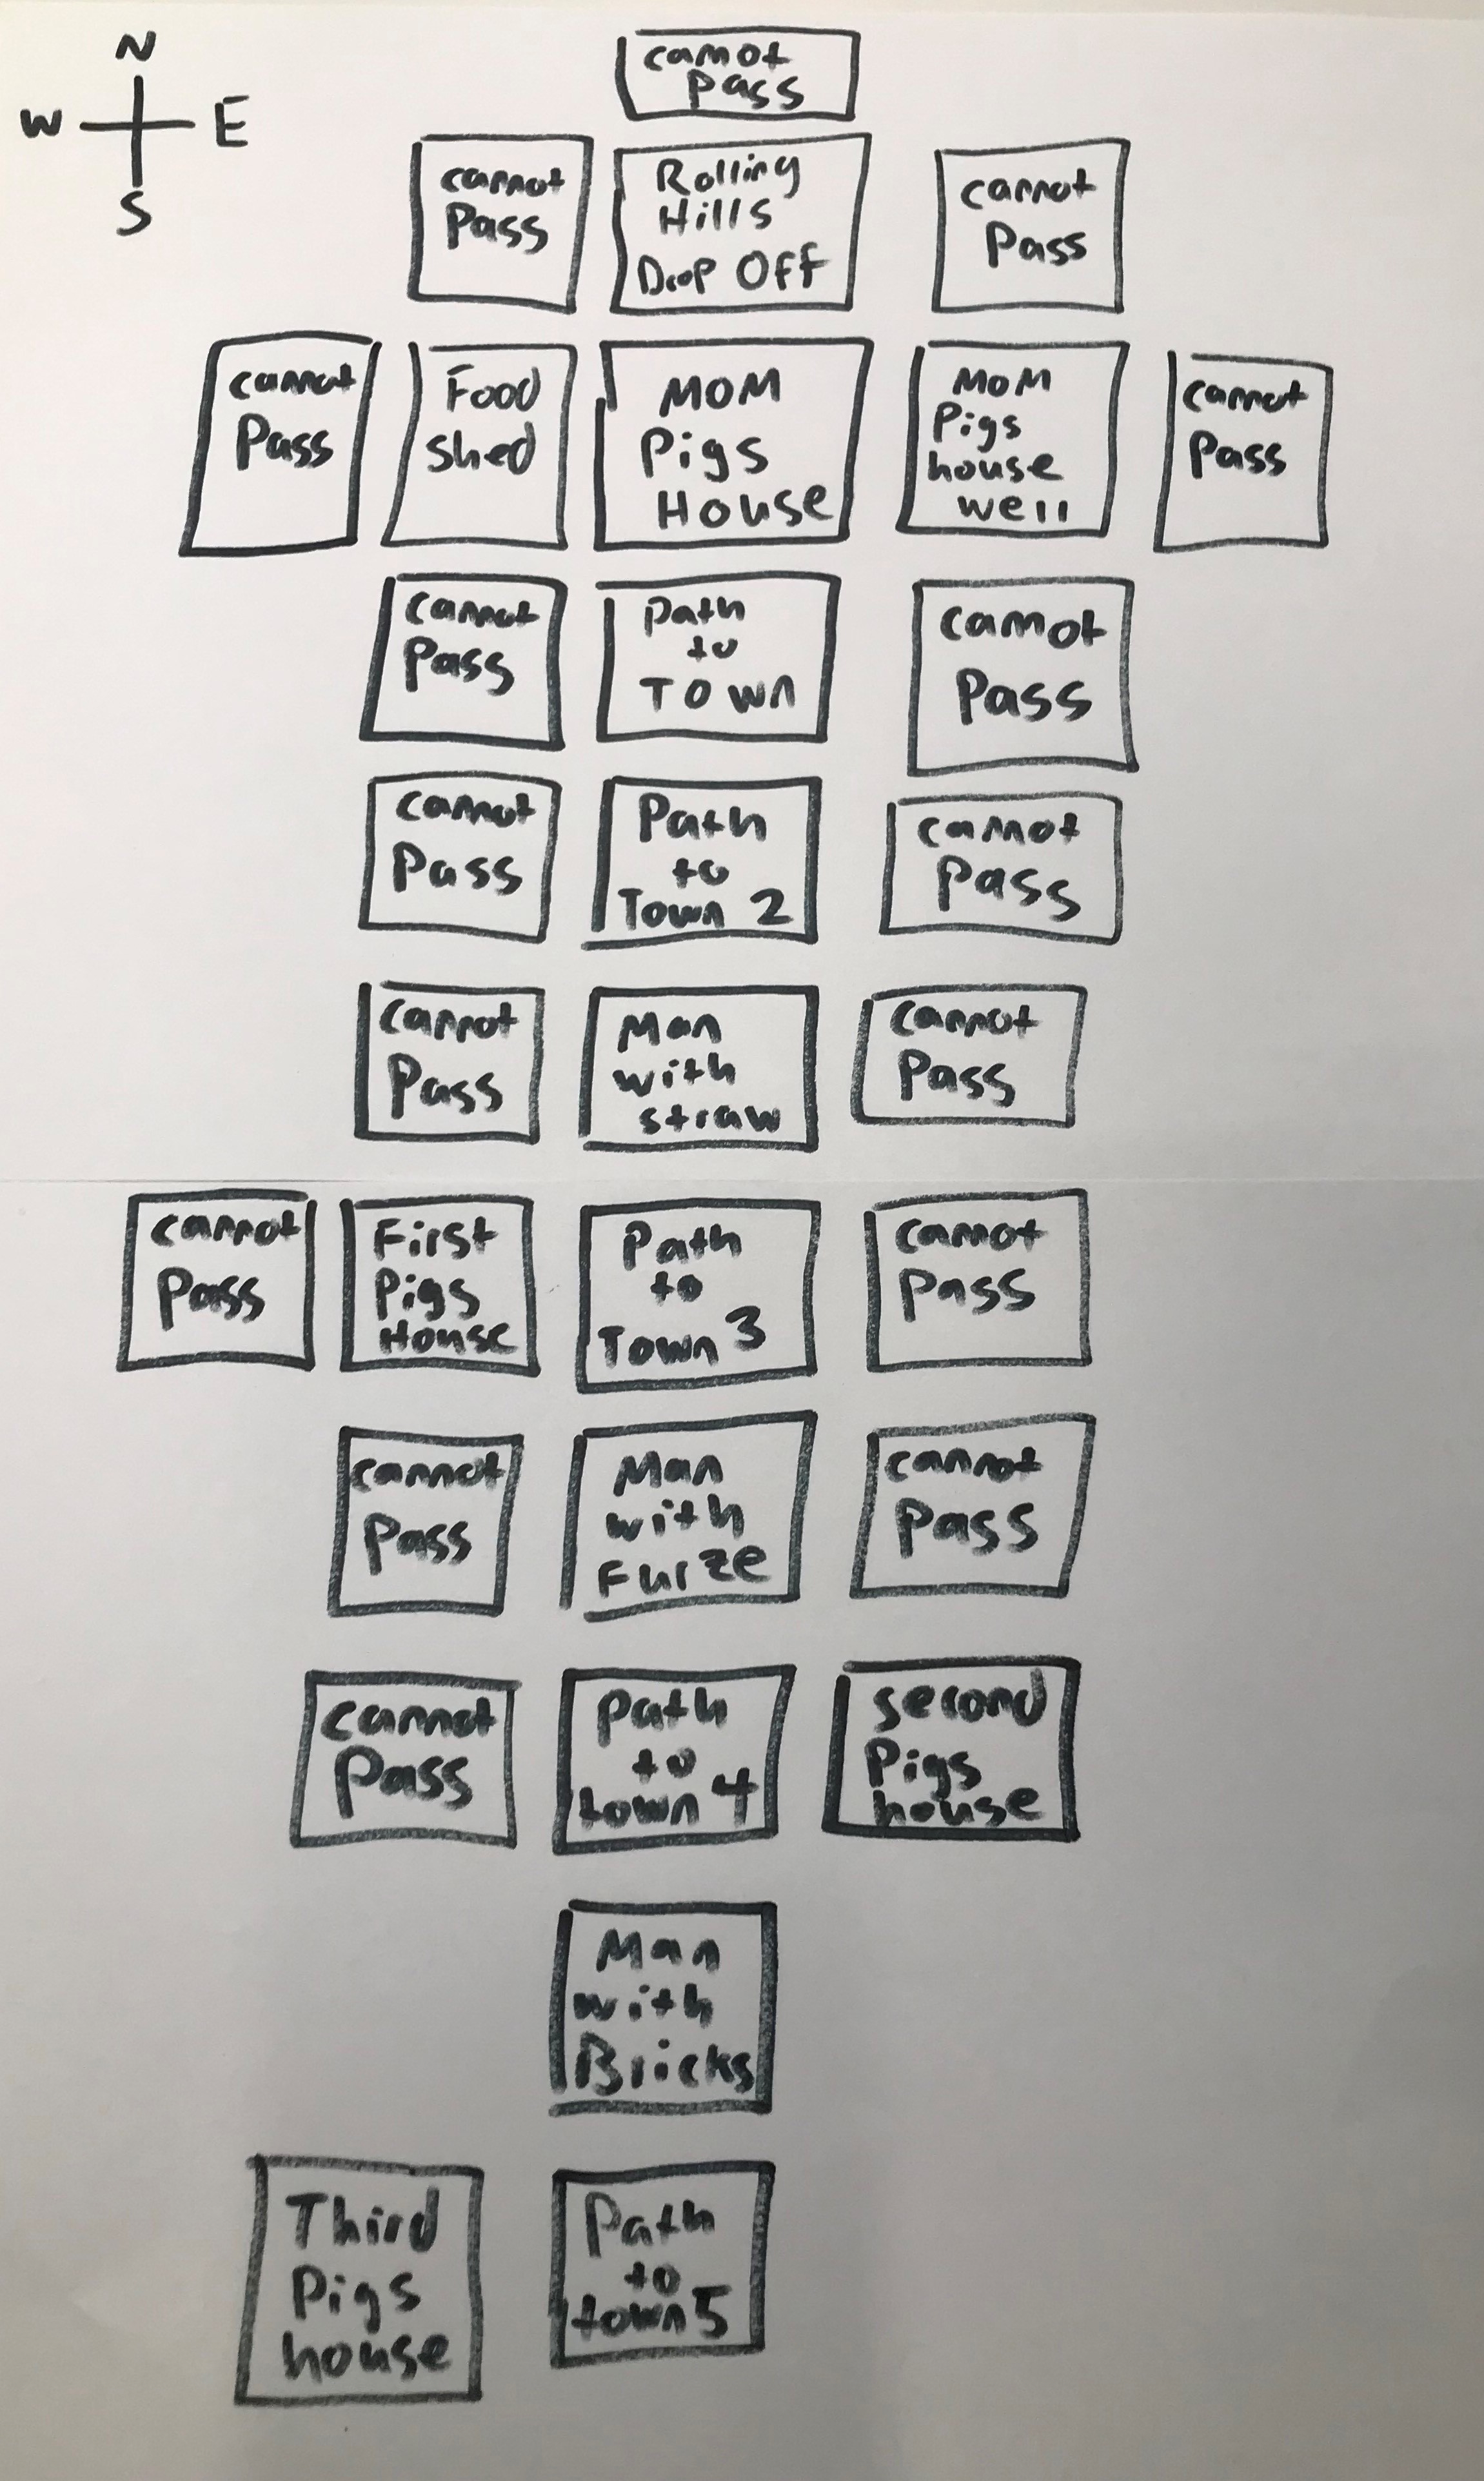 N
W E
S
cannot
Pass
cannot
Pass
Rolling
Hills
Drop Off
cannot
Pass
cannot
Pass
Food
shed
MOM
Pigs
House
MOM
Pigs
house
well
cannot
Pass
cannot
Pass
Path
to
TOWN
cannot
Pass
cannot
Pass
Path
to
Town 2
cannot
Pass
cannot
Pass
Man
with
straw
cannot
Pass
cannot
Pass
First
Pigs
House
Path
to
Town 3
cannot
Pass
cannot
Pass
Man
with
Furze
cannot
Pass
cannot
Pass
Path
to
town 4
second
Pigs
house
Man
with
Bricks
Third
Pigs
house
Path
to
town 5